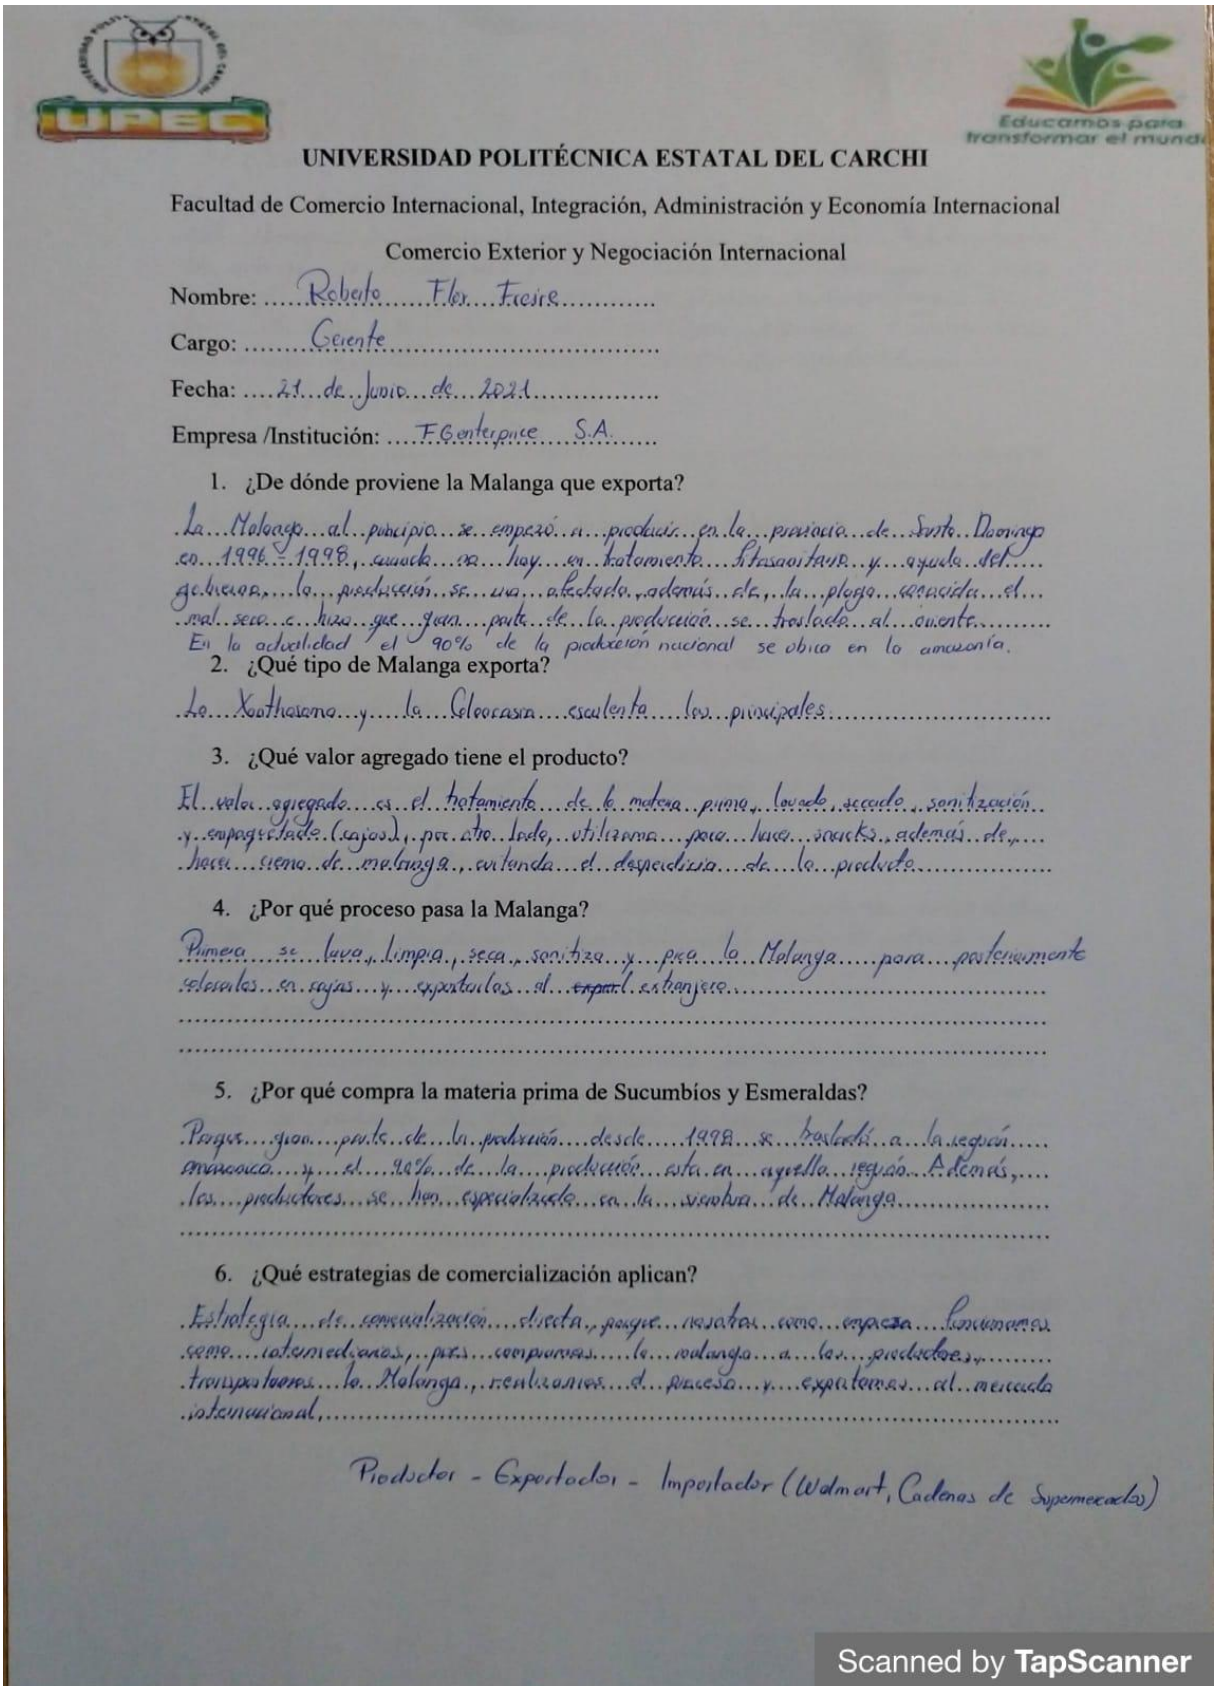 UNIVERSIDAD POLITÉCNICA ESTATAL DEL CARCHI
UPEC
Educamos para
transformar el mundo
UNIVERSIDAD POLITÉCNICA ESTATAL DEL CARCHI
Facultad de Comercio Internacional, Integración, Administración y Economía Internacional
Comercio Exterior y Negociación Internacional
Nombre: Roberto Flor Freire
Cargo: Gerente
Fecha: 21 de Junio de 2021
Empresa /Institución: F Genterprice S.A.
1. ¿De dónde proviene la Malanga que exporta?
La Malanga al principio se empezó a producir en la provincia de Santo Domingo
en 1996 - 1998, cuando no hay un tratamiento fitosanitario y ayuda del
gobierno, la producción se vio afectada, además de, la plaga conocida el
mal seco e hizo que gran parte de la producción se traslado al oriente.
En la actualidad el 90% de la producción nacional se ubica en la amazonía.
2. ¿Qué tipo de Malanga exporta?
La Xanthosoma y la Colocasia esculenta los principales.
3. ¿Qué valor agregado tiene el producto?
El valor agregado es el tratamiento de la materia prima, lavado, secado, sanitización
y empaquetado (cajas), por otro lado, utilizamo para hacer snacks, además de,
hacer crema de malanga, evitando el desperdicio de lo producto.
4. ¿Por qué proceso pasa la Malanga?
Primero se lava, limpia, seca, sanitiza y pica la Malanga para posteriormente
colocarlos en cajas y exportarlos al extranjero.
5. ¿Por qué compra la materia prima de Sucumbíos y Esmeraldas?
Porque gran parte de la producción desde 1998 se trasladó a la región
amazonica y el 90% de la producción esta en aquella región. Además,
los productores se han especializado en la siembra de Malanga.
6. ¿Qué estrategias de comercialización aplican?
Estrategia de comercialización directa, porque nosotros como empresa funcionamos
como intermediarios, pues compramos la malanga a los productores,
transportamos la Malanga, realizamos el proceso y exportamos al mercado
internacional,
Productor - Exportador - Importador (Walmart, Cadenas de Supermercados)
Scanned by TapScanner